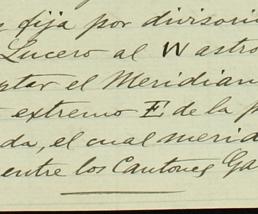 fija por divisori
Lucero al W astro
ptar el Meridian
extremo E de la p
da, el cual merid
entre los Cantones Ga